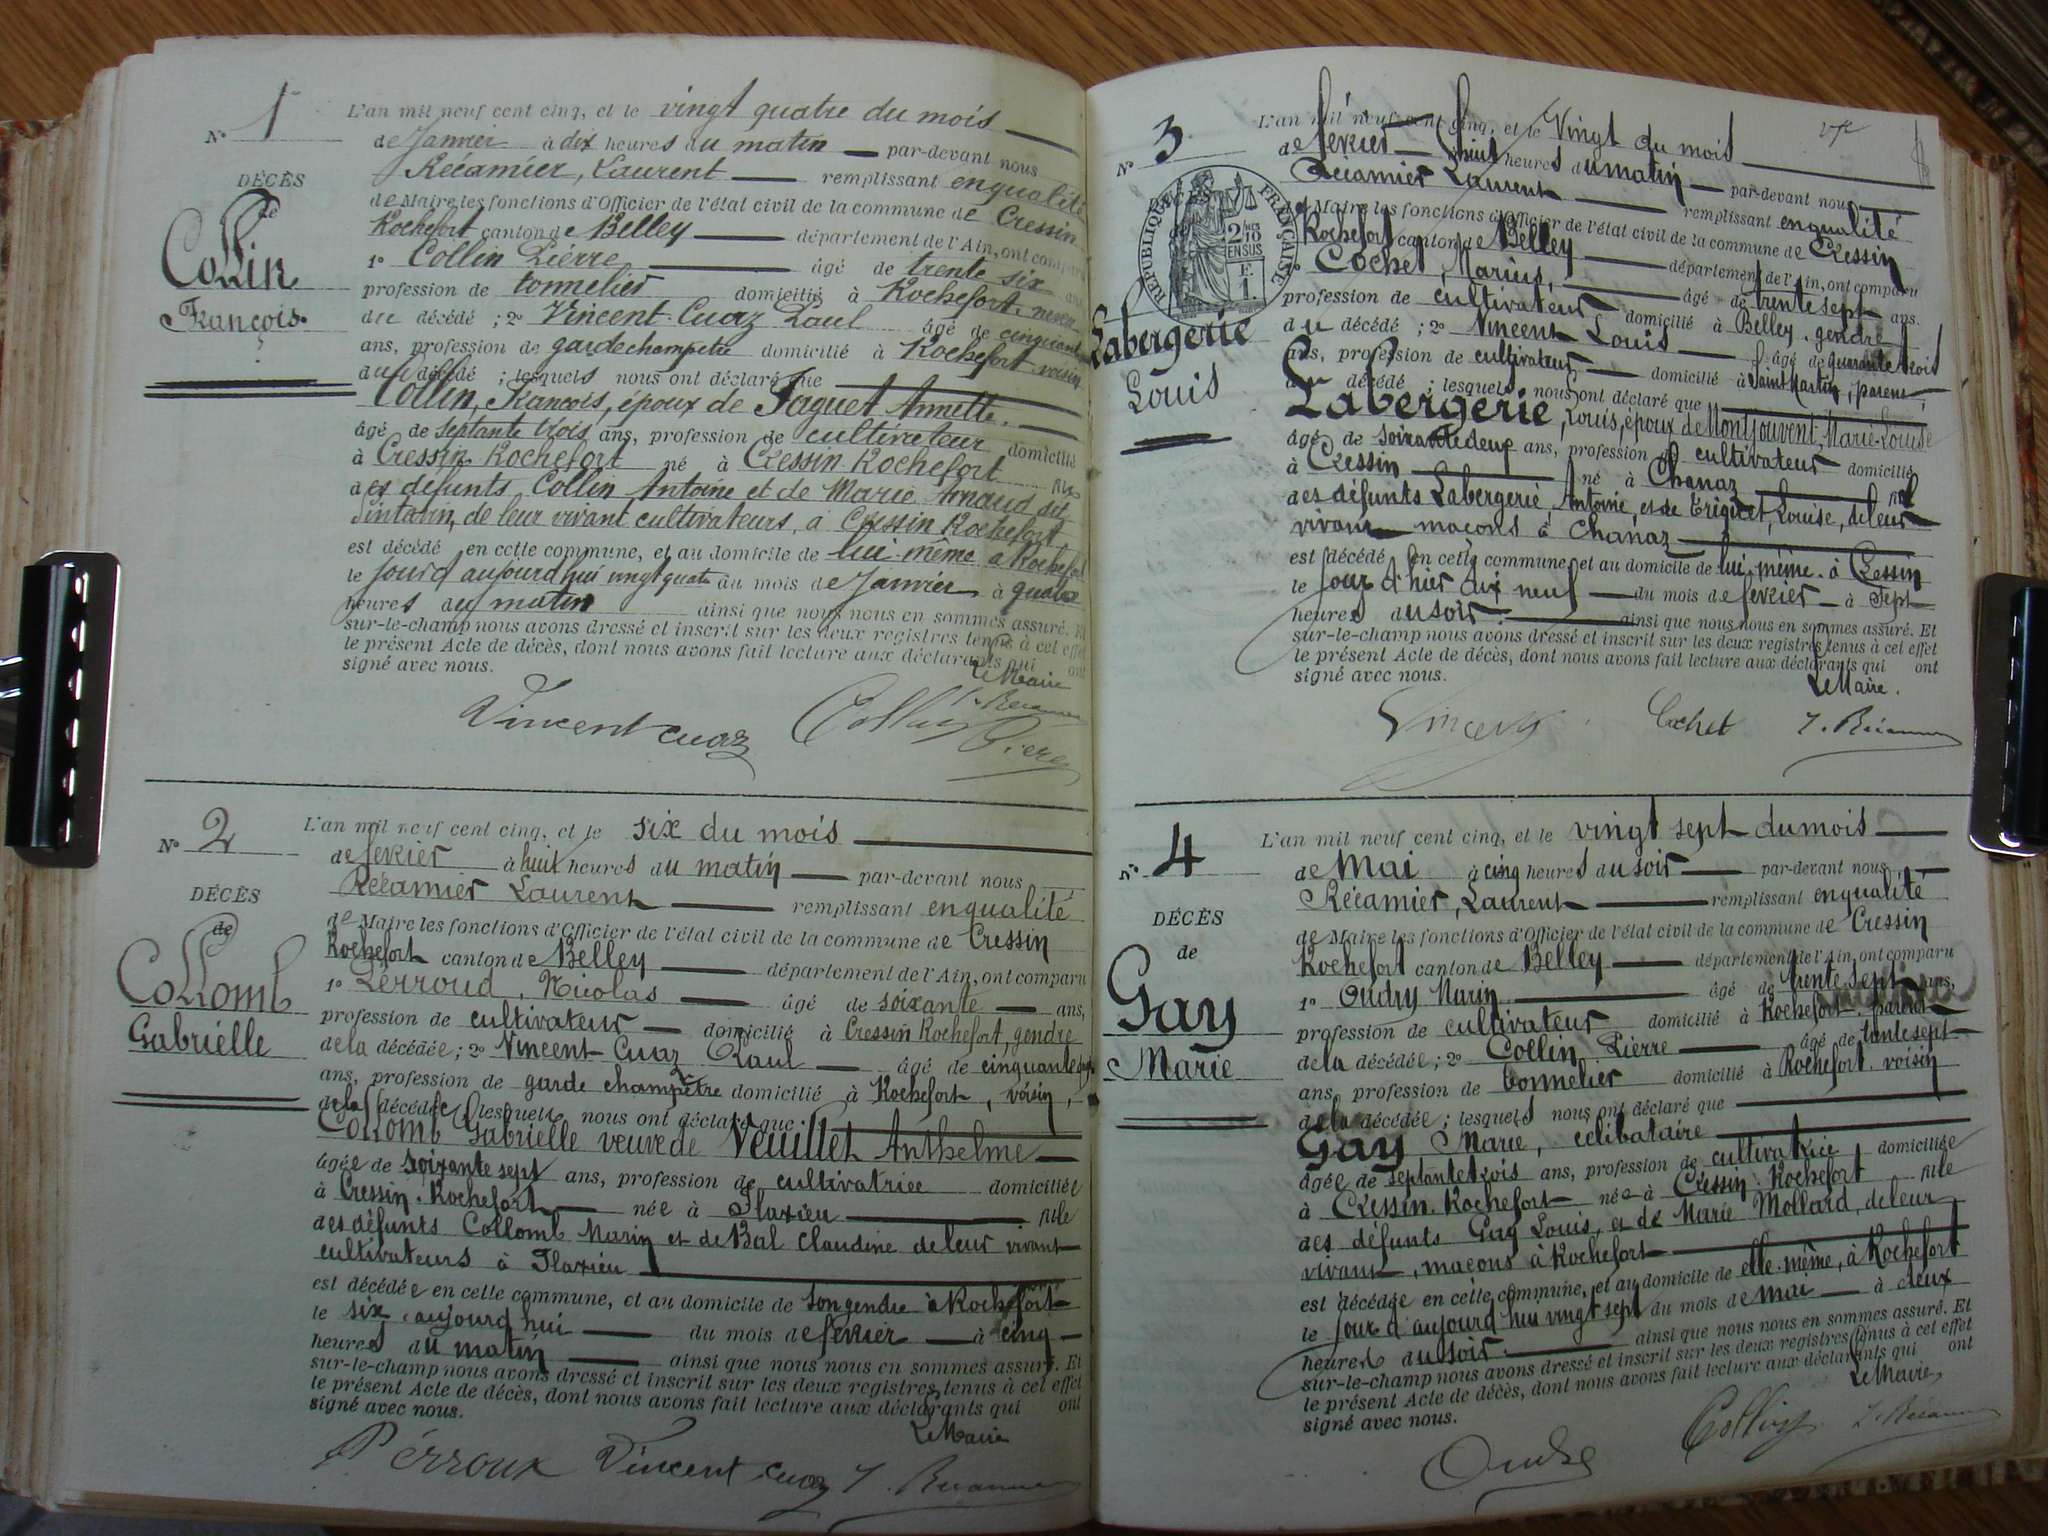 N° 1
DÉCÈS
de
Collin
François.
L'an mil neuf cent cinq, et le vingt quatre du mois
de Janvier à dix heures du matin par-devant nous
Récamier, Laurent remplissant en qualité
de Maire les fonctions d'Officier de l'état civil de la commune de Cressin
Rochefort canton de Belley département de l'Ain, ont comparu
1° Collin Pierre âgé de trente six ans
profession de tonnelier domicilié à Rochefort, neveu
du décédé ; 2° Vincent-Cuaz Paul âgé de cinquante
ans, profession de garde champetre domicilié à Rochefort, voisin
du décédé ; lesquels nous ont déclaré que
Collin, François, époux de Jaguet Annette,
âgé de septante trois ans, profession de cultivateur domicilié
à Cressin Rochefort né à Cressin Rochefort fils
des défunts Collin Antoine et de Marie Arnaud dit
de leur vivant cultivateurs, à Cressin Rochefort
est décédé en cette commune, et au domicile de lui-même à Rochefort
le jourd aujourd'hui vingt quatre du mois de Janvier à quatre
heures du matin ainsi que nous nous en sommes assuré. Et
sur-le-champ nous avons dressé et inscrit sur les deux registres tenus à cet effet
le présent Acte de décès, dont nous avons fait lecture aux déclarants qui ont
signé avec nous.
Le Maire
Vincent cuaz Collin Pierre
N° 2
DÉCÈS
de
Collomb
Gabriélle
L'an mil neuf cent cinq, et le six du mois
de fevrier à huit heures du matin par-devant nous
Récamier Laurent remplissant en qualité
de Maire les fonctions d'Officier de l'état civil de la commune de Cressin
Rochefort canton de Belley département de l'Ain, ont comparu
1° Perroud, Nicolas âgé de soixante ans,
profession de cultivateur domicilié à Cressin Rochefort, gendre
de la décédée ; 2° Vincent Cuaz Paul âgé de cinquante
ans, profession de garde champêtre domicilié à Rochefort, voisin,
de la décédée lesquels nous ont déclaré que
Collomb Gabrielle veuve de Veuillet Anthelme
âgée de soixante sept ans, profession de cultivatrice domiciliée
à Cressin-Rochefort née à Flaxieu fille
des défunts Collomb Marin et de Bal Claudine de leur vivant
cultivateurs à Flaxieu
est décédée en cette commune, et au domicile de son gendre à Rochefort
le six, aujourd'hui du mois de fevrier à cinq
heures du matin ainsi que nous nous en sommes assuré. Et
sur-le-champ nous avons dressé et inscrit sur les deux registres tenus à cet effet
le présent Acte de décès, dont nous avons fait lecture aux déclarants qui ont
signé avec nous.
Le Maire
Pérroux Vincent cuaz
N° 3
RÉPUBLIQUE FRANÇAISE
2 1/10
EN SUS
F.
1.
Labergerie
Louis
L'an mil neuf cent cinq, et le Vingt du mois
de fevrier à huit heures du matin par-devant nous
Récamier Laurent remplissant en qualité
de Maire les fonctions d'Officier de l'état civil de la commune de Cressin
Rochefort canton de Belley département de l'Ain, ont comparu
1° Cochet, Marius, âgé de trente sept ans.
profession de cultivateur domicilié à Belley, gendre
du décédé ; 2° Vincent Louis âgé de quarante trois
ans, profession de cultivateur domicilié à Saint Martin, parent,
du décédé ; lesquels nous ont déclaré que
Labergerie, Louis, époux de Montjouvent, Marie-Louise
âgé de soixante deux ans, profession de cultivateur domicilié
à Cressin né à Chanaz fils
des défunts Labergerie, Antoine, et de Louise, de leur
vivant maçons à Chanaz
est décédé en cette commune, et au domicile de lui-même, à Cressin
le jour d'hier dix neuf du mois de fevrier à sept
heures du soir. ainsi que nous nous en sommes assuré. Et
sur-le-champ nous avons dressé et inscrit sur les deux registres tenus à cet effet
le présent Acte de décès, dont nous avons fait lecture aux déclarants qui ont
signé avec nous.
Le Maire.
Vincent Cochet
N° 4
DÉCÈS
de
Gay
Marie
L'an mil neuf cent cinq, et le vingt sept du mois
de Mai à cinq heures du soir par-devant nous
Récamier, Laurent remplissant en qualité
de Maire les fonctions d'Officier de l'état civil de la commune de Cressin
Rochefort canton de Belley département de l'Ain, ont comparu
1° Oudry Marin âgé de trente sept ans,
profession de cultivateur domicilié à Rochefort, parent
de la décédée ; 2° Collin Pierre âgé de trente sept
ans, profession de tonnelier domicilié à Rochefort, voisin
de la décédée ; lesquels nous ont déclaré que
Gay, Marie, célibataire
âgée de septante trois ans, profession de cultivatrice domiciliée
à Cressin-Rochefort née à Cressin-Rochefort fille
des défunts Gay Louis, et de Marie Mollard, de leur
vivant, maçons à Rochefort
est décédée en cette commune, et au domicile de elle-même, à Rochefort
le jour d'aujourd'hui vingt sept du mois de mai à deux
heures du soir. ainsi que nous nous en sommes assuré. Et
sur-le-champ nous avons dressé et inscrit sur les deux registres tenus à cet effet
le présent Acte de décès, dont nous avons fait lecture aux déclarants qui ont
signé avec nous.
Le Maire
Collin